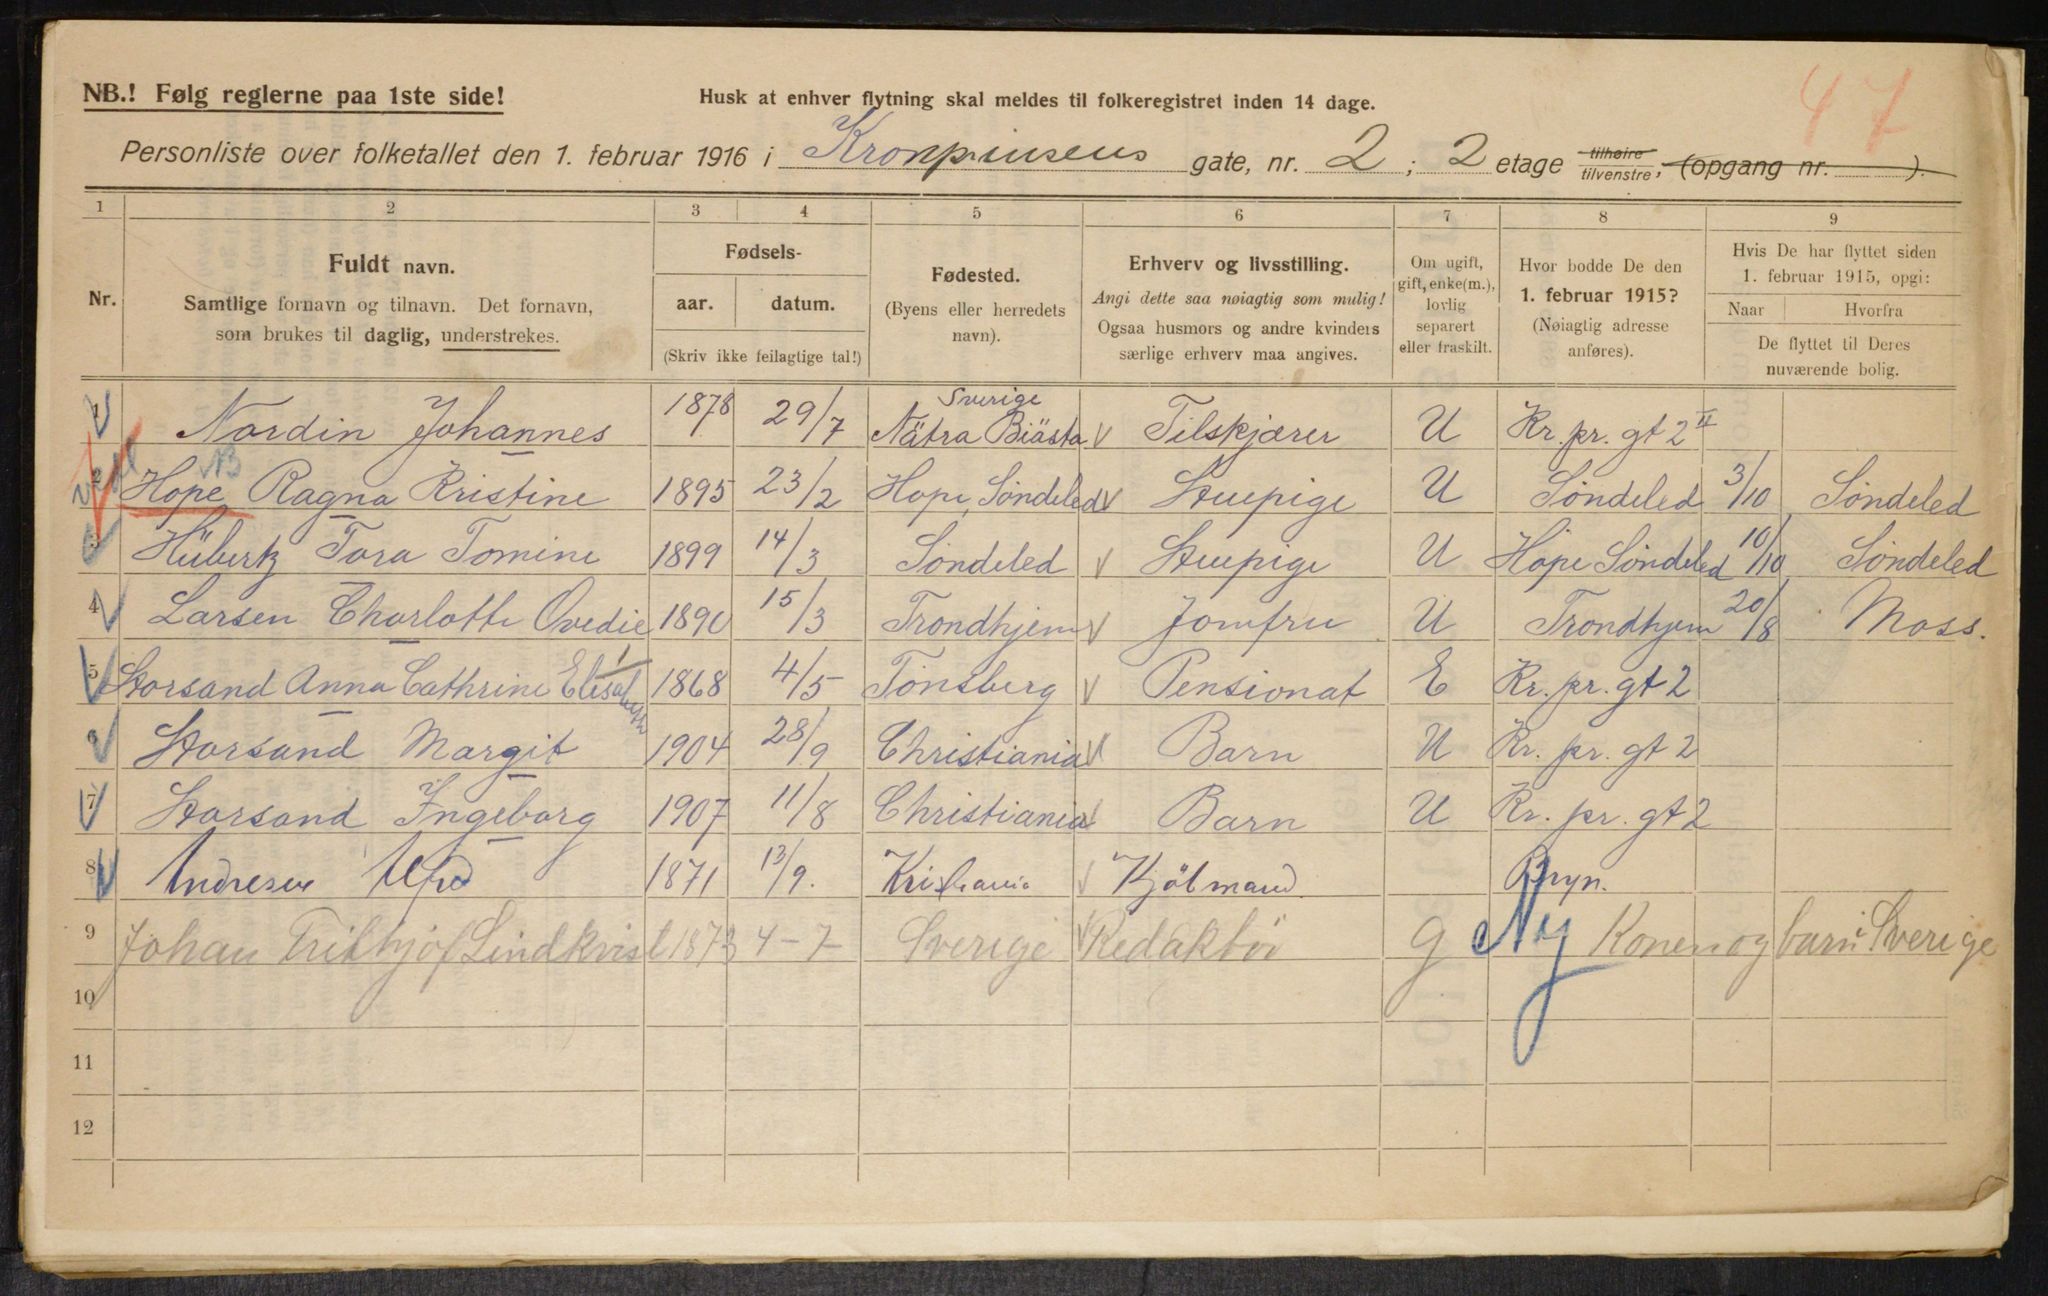 47
NB.! Følg reglerne paa 1ste side!
Husk at enhver flytning skal meldes til folkeregistret inden 14 dage.
Personliste over folketallet den 1. februar 1916 i Kronprinsens gate, nr. 2 ; 2 etage tilhøire tilvenstre, (opgang nr. ).
1 2 3 4 5 6 7 8 9
Nr.
Fuldt navn.
Samtlige fornavn og tilnavn. Det fornavn,
som brukes til daglig, understrekes.
Fødsels-
aar. datum.
(Skriv ikke feilagtige tal!)
Fødested.
(Byens eller herredets
navn).
Erhverv og livsstilling.
Angi dette saa nøiagtig som mulig!
Ogsaa husmors og andre kvinders
særlige erhverv maa angives.
Om ugift,
gift, enke(m.),
lovlig
separert
eller fraskilt.
Hvor bodde De den
1. februar 1915?
(Nøiagtig adresse
anføres).
Hvis De har flyttet siden
1. februar 1915, opgi:
Naar Hvorfra
De flyttet til Deres
nuværende bolig.
1 Nordin Johannes 1878 29/7 Sverige Nätra Biästa Tilskjærer U Kr. pr. gt 2 II
NB
2 Hope Ragna Kristine 1895 23/2 Hope, Søndeled Stuepige U Søndeled 3/10 Søndeled
3 Hübertz Tora Tomine 1899 14/3 Søndeled Stuepige U Hope Søndeled 10/10 Søndeled
4 Larsen Charlotte Ovedie 1890 15/3 Trondhjem Jomfru U Trondhjem 20/8 Moss.
5 Storsand Anna Cathrine Elisabeth 1868 4/5 Tønsberg Pensionat E Kr. pr. gt 2
6 Storsand Margit 1904 28/9 Christiania Barn U Kr. pr. gt 2
7 Storsand Ingeborg 1907 11/8 Christiania Barn U Kr. pr. gt 2
8 Andresen Alfred 1871 13/9. Kristiania Kjølmand Bryn.
9 Johan Frithjof Lindkvist 1873 4-7- Sverige Redaktör G Ny Konen og barn i Sverige
10
11
12